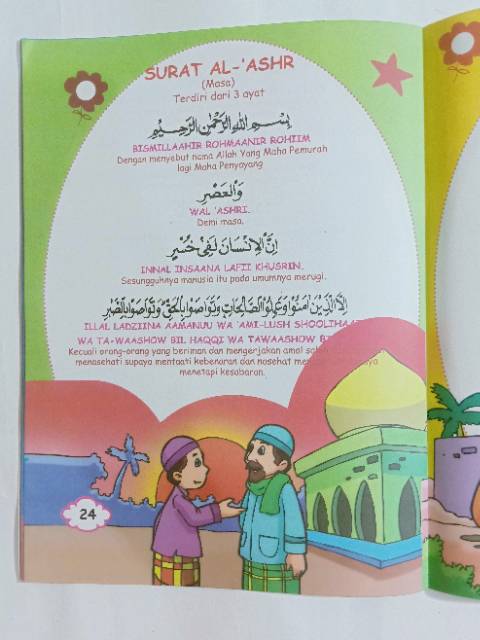 SURAT AL-'ASHR
(Masa)
Terdiri dari 3 ayat
بِسْمِ اللهِ الرَّحْمٰنِ الرَّحِيْمِ
BISMILLAAHIR ROHMAANIR ROHIIM
Dengan menyebut nama Allah Yang Maha Pemurah
lagi Maha Penyayang
وَالْعَصْرِ
WAL 'ASHRI.
Demi masa.
اِنَّ الْاِنْسَانَ لَفِيْ خُسْرٍ
INNAL INSAANA LAFII KHUSRIN.
Sesungguhnya manusia itu pada umumnya merugi.
اِلَّا الَّذِيْنَ اٰمَنُوْا وَعَمِلُوا الصَّالِحَاتِ وَتَوَاصَوْا بِالْحَقِّ وَتَوَاصَوْا بِالصَّبْرِ
ILLAL LADZIINA AAMANUU WA 'AMI-LUSH SHOOLIHAA
WA TA-WAASHOW BIL HAQQI WA TAWAASHOW
Kecuali orang-orang yang beriman dan mengerjakan amal
menasehati supaya mentaati kebenaran dan nasehat
menetapi kesabaran.
24